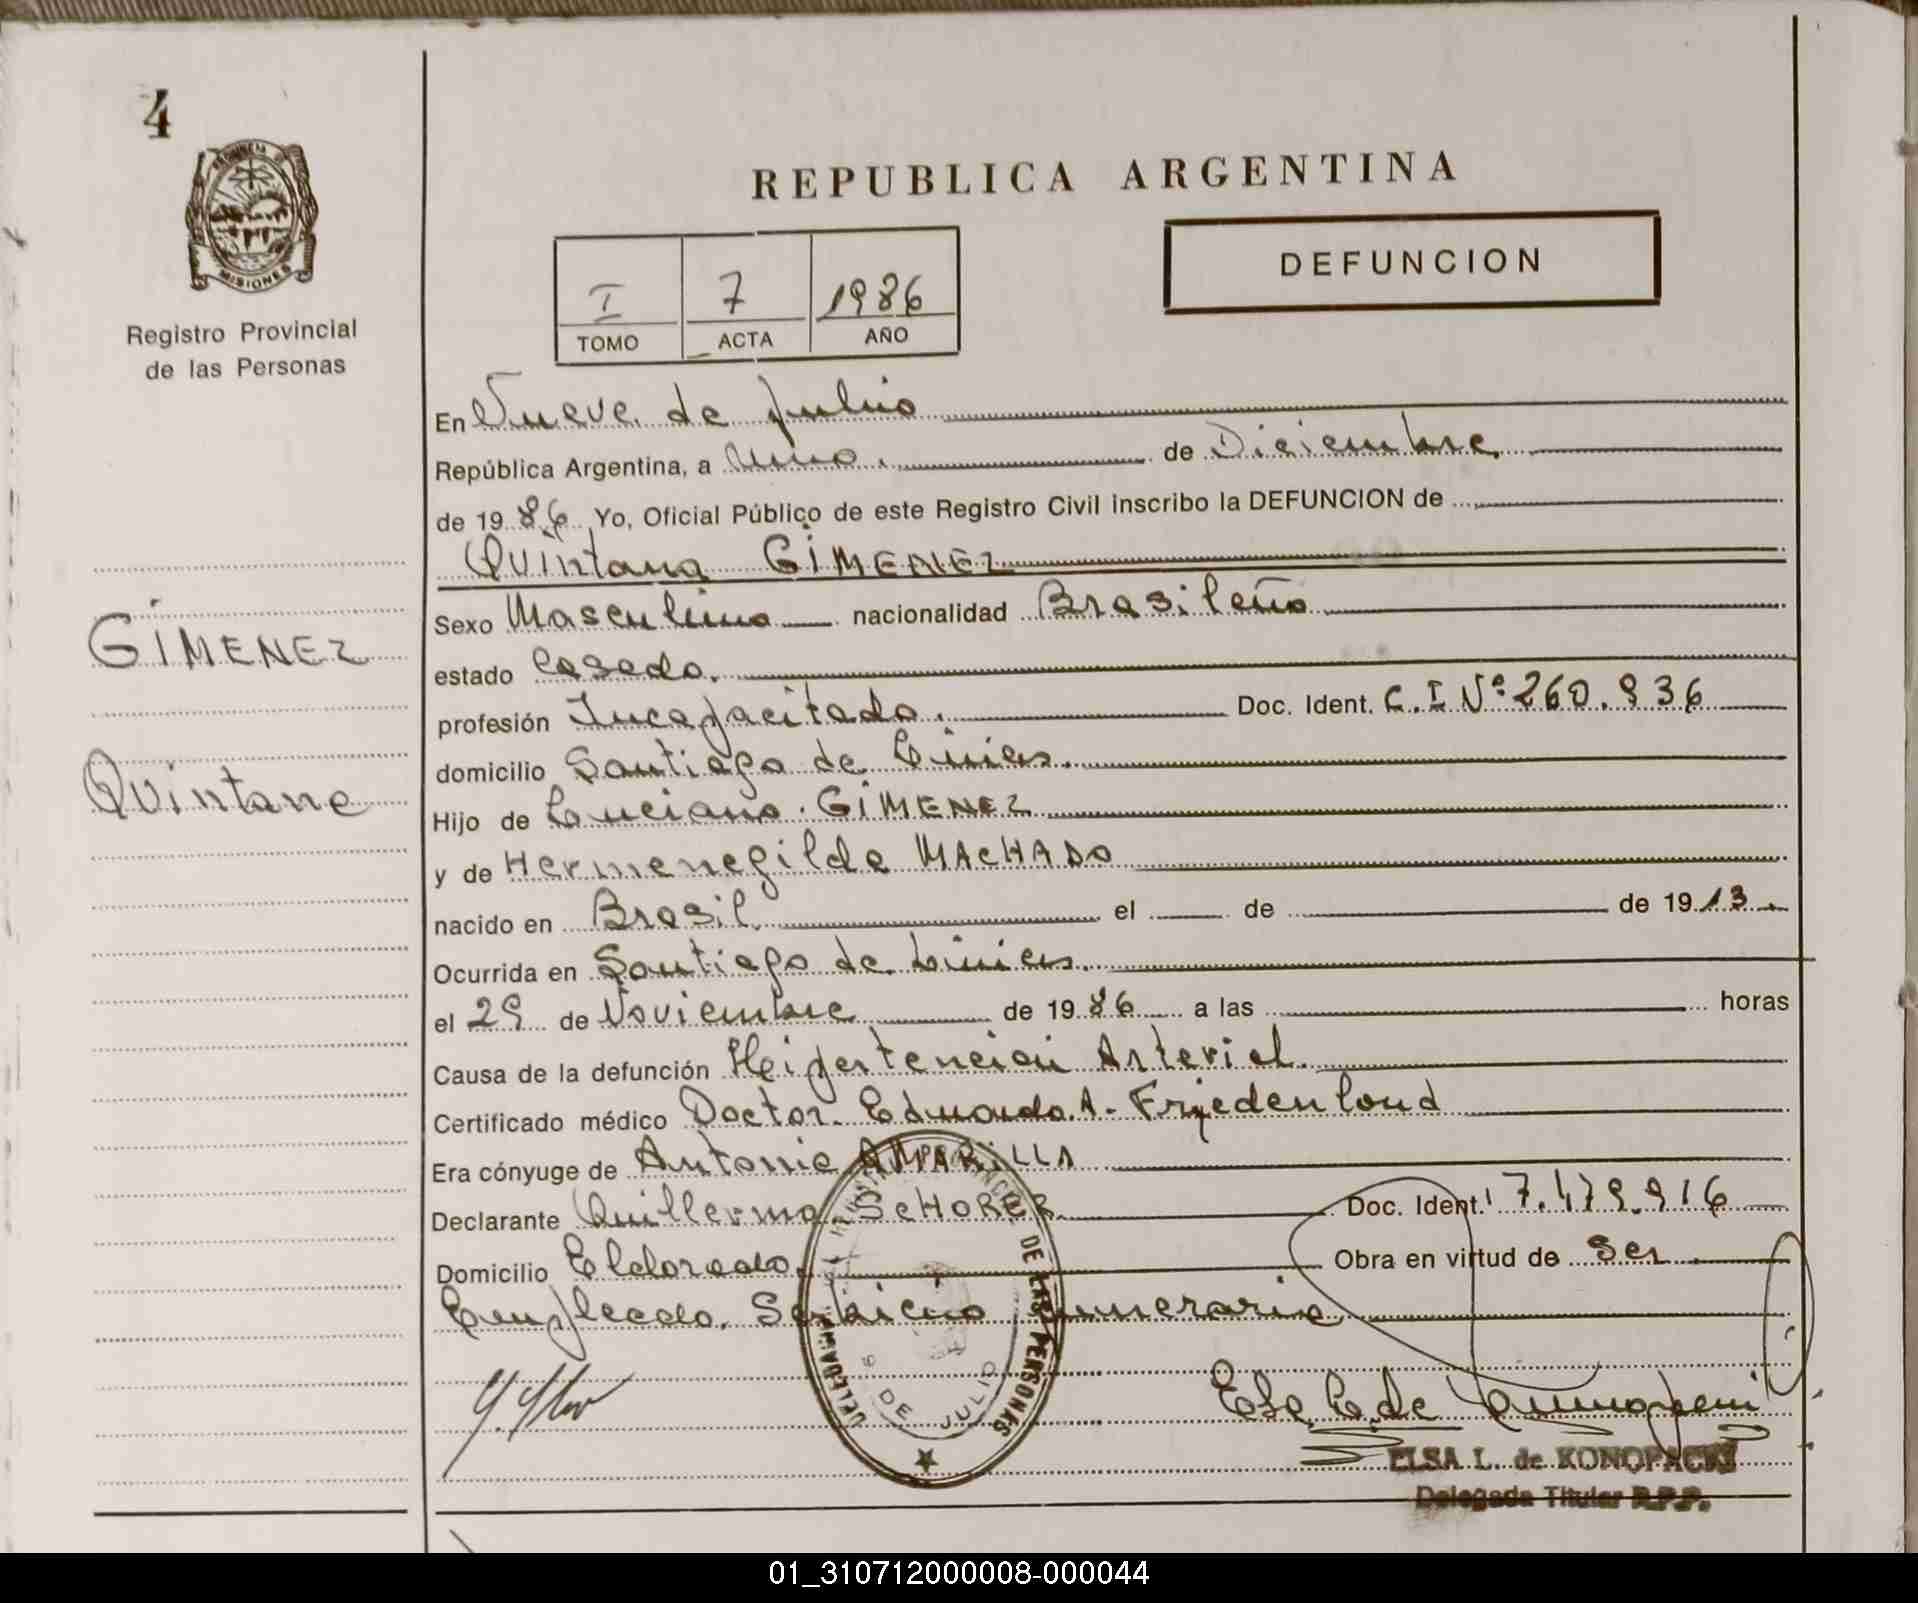 4
PROVINCIA DE
MISIONES
Registro Provincial
de las Personas
REPUBLICA ARGENTINA
DEFUNCION
I 7 1986
TOMO ACTA AÑO
En Nueve de Julio
República Argentina, a uno. de Diciembre
de 1986 Yo, Oficial Público de este Registro Civil inscribo la DEFUNCION de
Quintana GIMENEZ
GIMENEZ
Quintana
Sexo Masculino nacionalidad Brasileño
estado Casado.
profesión Incapacitado. Doc. Ident. C.I Nº 260.936
domicilio Santiago de Liniers.
Hijo de Luciano GIMENEZ
y de Hermenegilda MACHADO
nacido en Brasil. el de de 1913.
Ocurrida en Santiago de Liniers.
el 29 de Noviembre de 1986 a las horas
Causa de la defunción Heipertencion Arterial.
Certificado médico Doctor. Eduardo.A. Friedenlond
Era cónyuge de Antonia AMARILLA
Declarante Guillermo SCHORER. Doc. Ident. 7.479.916
Domicilio Eldorado. Obra en virtud de ser
Empleado. Serbicio funeraria
DE LAS PERSONAS
9 DE JULIO
ELSA L. de KONOPACKI
Delegada Titular R.P.P.
01_310712000008-000044